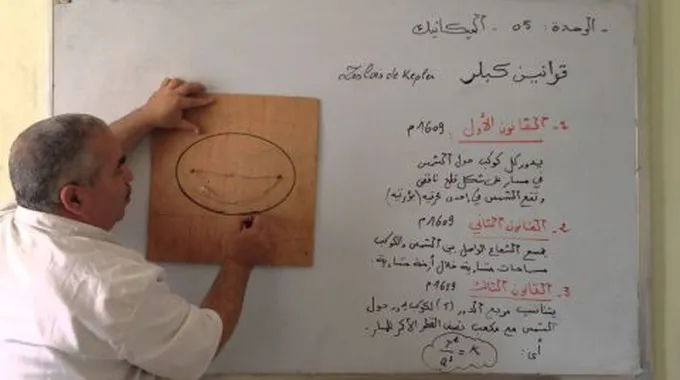 - الوحدة: 05 - الميكانيك
قوانين كبلر Les Lois de Kepler
1- القانون الأول: 1609م
يدور كل كوكب حول الشمس
في مسار على شكل قطع ناقصي
وتقع الشمس في إحدى محرقيه (بؤرتيه)
2- القانون الثاني 1609م
يمسح الشعاع الواصل بين الشمس والكوكب
مساحات متساوية خلال أزمنة متساوية.
3- القانون الثالث 1619م
يتناسب مربع الدور (T) لكوكب يدور حول
الشمس مع مكعب نصف القطر الأكبر للمسار.
أي: T²/a³ = K